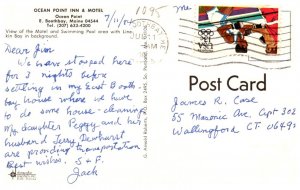 OCEAN POINT INN & MOTEL
Ocean Point
E. Boothbay, Maine 04544
Tel. (207) 633-4200
View of the Motel and Swimming Pool area with Linekin Bay in background.
7/11/95
1995
Me.
Dear Jim
We have stopped here
for 2 nights before
settling in my East Booth-
bay house where we have
to do some house-cleaning.
My daughter Peggy and his
husband Terry Dewhurst
are providing transportation
Best wishes. S + F.
Jack
Post Card
James R. Case
55 Masonic Ave, Capt 302
Wallingford CT 06492